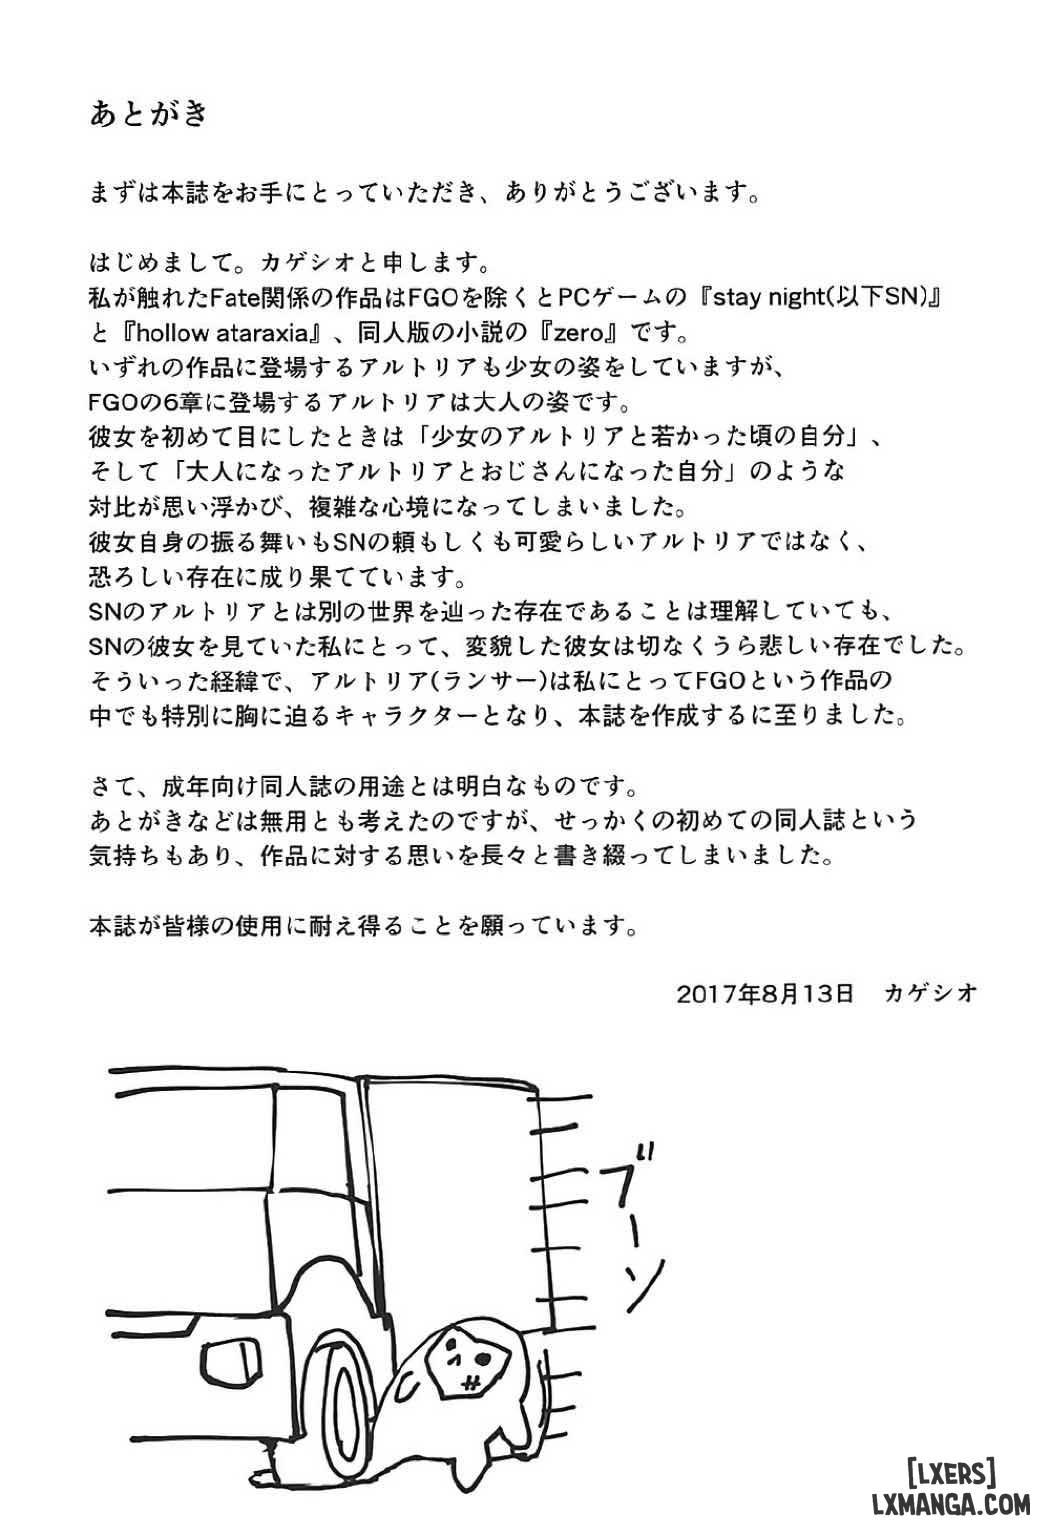 あとがき
まずは本誌をお手にとっていただき、ありがとうございます。
はじめまして。カゲシオと申します。
私が触れたFate関係の作品はFGOを除くとPCゲームの『stay night(以下SN)』
と『hollow ataraxia』、同人版の小説の『zero』です。
いずれの作品に登場するアルトリアも少女の姿をしていますが、
FGOの6章に登場するアルトリアは大人の姿です。
彼女を初めて目にしたときは「少女のアルトリアと若かった頃の自分」、
そして「大人になったアルトリアとおじさんになった自分」のような
対比が思い浮かび、複雑な心境になってしまいました。
彼女自身の振る舞いもSNの頼もしくも可愛らしいアルトリアではなく、
恐ろしい存在に成り果てています。
SNのアルトリアとは別の世界を辿った存在であることは理解していても、
SNの彼女を見ていた私にとって、変貌した彼女は切なくうら悲しい存在でした。
そういった経緯で、アルトリア(ランサー)は私にとってFGOという作品の
中でも特別に胸に迫るキャラクターとなり、本誌を作成するに至りました。
さて、成年向け同人誌の用途とは明白なものです。
あとがきなどは無用とも考えたのですが、せっかくの初めての同人誌という
気持ちもあり、作品に対する思いを長々と書き綴ってしまいました。
本誌が皆様の使用に耐え得ることを願っています。
2017年8月13日　カゲシオ
ブーン
[LXERS]
LXMANGA.COM